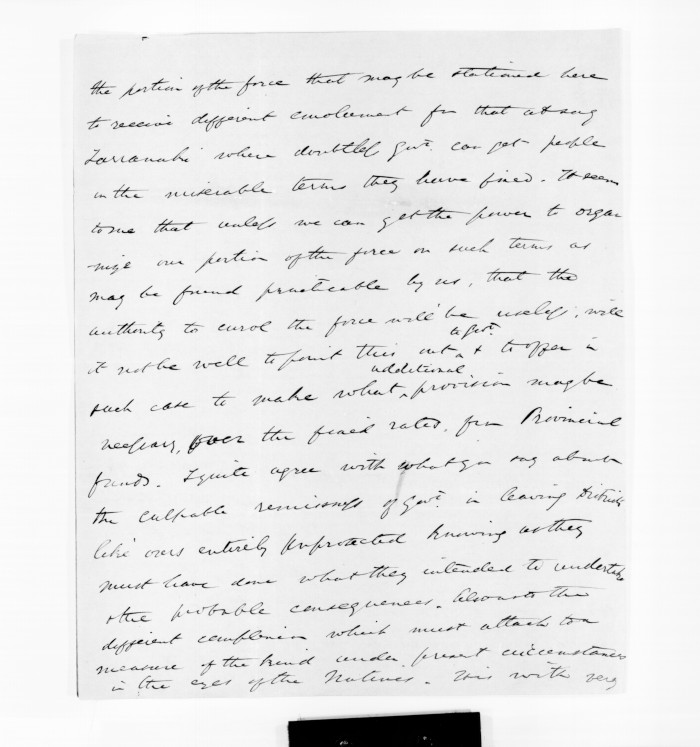 the portion of the force that may be stationed here
to receive different emolument from that at say
Tarranaki where doubtless Govt. can get people
on the miserable terms they have fixed. It seems
to me that unless we can get the power to orga
nize our portion of the force on such terms as
may be found practicable by us, that the
authority to enrol the force will be useless, will
it not be well to point this out to Govt. & to offer in
such case to make what additional provision may be
necessary, over the fixed rates, from Provincial
funds. I quite agree with what you say about
the culpable remissness of Govt. in leaving Districts
like ours entirely unprotected knowing as they
must have done what they intended to undertake
& the probable consequences. Also as to the
different complexion which must attach to a
measure of the kind under present circumstances
in the eyes of the Natives. This with very